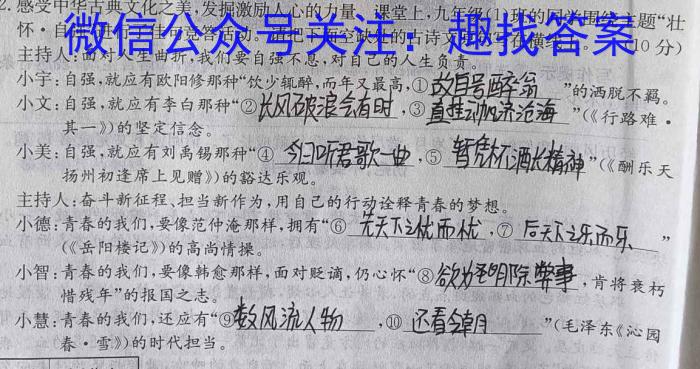 2. 感受中华古典文化之美,发掘激励人心的力量。课堂上,九年级(1)班的同学围绕主题“壮
怀·自
微信公众号关注：趣找答案
10分)
主持人:面对人生曲折,我们要自强不息,对自己的人生负责。
小宇:自强,就应有欧阳修那种“饮少辄醉,而年又最高,①故自号醉翁”的洒脱不羁。
小文:自强,就应有李白那种“②长风破浪会有时,③直挂云帆济沧海”(《行路难·
其一》)的坚定信念。
小美:自强,就应有刘禹锡那种“④今日听君歌一曲,⑤暂凭杯酒长精神”(《酬乐天
扬州初逢席上见赠》)的豁达乐观。
主持人:奋斗新征程、担当新作为,用自己的行动诠释青春的梦想。
小德:青春的我们,要像范仲淹那样,拥有“⑥先天下之忧而忧,⑦后天下之乐而乐”
(《岳阳楼记》)的高尚情操。
小智:青春的我们,要像韩愈那样,面对贬谪,仍心怀“⑧欲为圣明除弊事,肯将衰朽
惜残年”的报国之志。
小慧:青春的我们,还应有“⑨数风流人物,⑩还看今朝”(毛泽东《沁园
春·雪》)的时代担当。